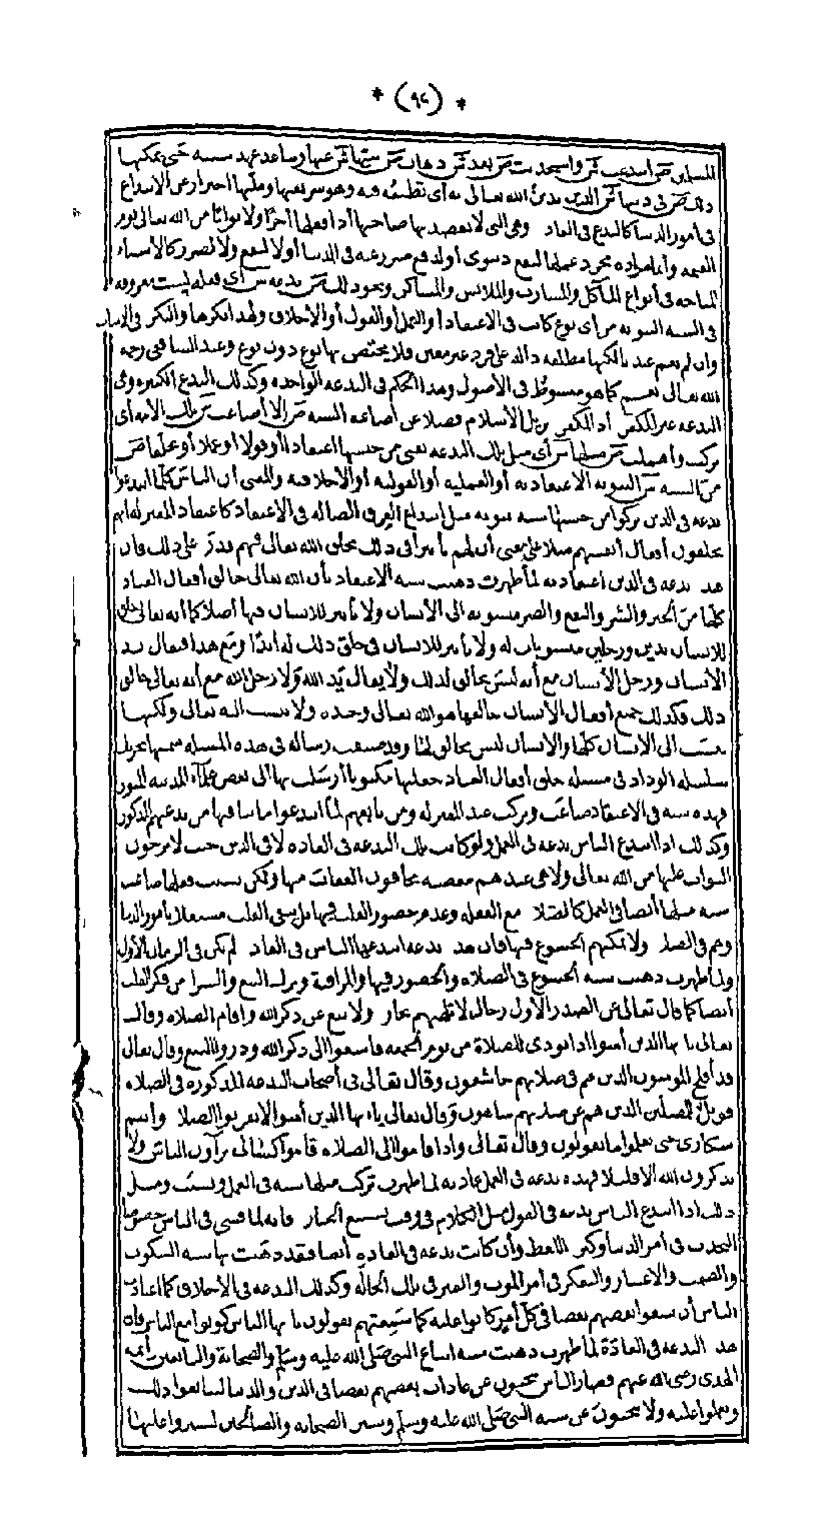 * (٩٢) *
المسلمين ص ابتدعت ش واستحدثت ص بعد ش
ذلك ص في دينها ش الذي يدين الله تعالى به أي تطيعه فيه وهو شريعتها وملتها احتراز عن الابتداع
في أمور الدنيا كالبدع في العادة وهي التي لا يقصد بها صاحبها إذا فعلها أجرا ولا ثوابا من الله تعالى يوم
القيمة وإنما مراده مجرد عملها لنفع دنيوي أو لدفع ضرر عنه في الدنيا أو لا لنفع ولا لضرر كالأشياء
المباحة في أنواع المآكل والمشارب والملابس والمساكن ونحو ذلك ص بدعة ش أي فعلة ليست معروفة
في السنة النبوية من أي نوع كانت في الاعتقاد أو العمل أو القول أو الأخلاق ولهذا نكرها والنكرة في الإثبات
وإن لم تعم عندنا لكنها مطلقة دالة على فرد غير معين فلا يختص بها نوع دون نوع وعند الشافعي رحمه
الله تعالى تعم كما هو مبسوط في الأصول وهذا الحكم في البدعة الواحدة وكذلك البدع الكثيرة وفي
البدعة غير المكفرة إذ المكفرة تزيل الإسلام فضلا عن إضاعة السنة ص إلا أضاعت ش تلك الأمة أي
تركت وأهملت ص مثلها ش أي مثل تلك البدعة يعني من جنسها اعتقادا أو قولا أو عملا أو خلقا ص
من السنة ش النبوية الاعتقادية أو العملية أو القولية أو الأخلاقية والمعنى أن الناس كلما ابتدعوا
بدعة في الدين تركوا من جنسها سنة نبوية مثل ابتداع الفرق الضالة في الاعتقاد كاعتقاد المعتزلة أنهم
يخلقون أفعال أنفسهم مثلا على معنى أن لهم تأثيرا في ذلك بخلق الله تعالى فيهم قدرة على ذلك فإن
هذه بدعة في الدين اعتقادية لما ظهرت ذهبت سنة الاعتقاد بأن الله تعالى خالق أفعال العباد
كلها من الخير والشر والنفع والضر منسوبة إلى الإنسان ولا تأثير للإنسان فيها أصلا كما أنه تعالى خلق
للإنسان يدين ورجلين منسوبات له ولا تأثير للإنسان في خلق ذلك له أبدا ومع هذا فيقال يد
الإنسان ورجل الإنسان مع أنه ليس بخالق لذلك ولا يقال يد الله ولا رجل الله مع أنه تعالى خالق
ذلك فكذلك جميع أفعال الإنسان خالقها هو الله تعالى وحده ولا تنسب إليه تعالى ولكنها
تنسب إلى الإنسان كلها والإنسان ليس بخالق لها وقد صنفت رسالة في هذه المسئلة سميتها تحريك
سلسلة الوداد في مسئلة خلق أفعال العباد جعلتها مكتوبا أرسلت بها إلى بعض علماء المدينة المنورة
فهذه سنة في الاعتقاد ضاعت وتركت عند المعتزلة ومن تابعهم لما ابتدعوا ما ينافيها من بدعتهم المذكورة
وكذلك إذا ابتدع الناس بدعة في العمل ولو كانت تلك البدعة في العادة لا في الدين حيث لا يرجون
الثواب عليها من الله تعالى ولا هي عندهم معصية يخافون العقاب منها ولكن بسبب فعلها ضاعت
سنة مثلها أيضا في العمل كالصلاة مع الغفلة وعدم حضور القلب فيها بل يبقى القلب مشتغلا بأمور الدنيا
وهم في الصلاة ولا يمكنهم الخشوع فيها فإن هذه بدعة ابتدعها الناس في العادة لم تكن في الزمان الأول
ولما ظهرت ذهبت سنة الخشوع في الصلاة والحضور فيها والمراقبة وترك البيع والشراء من فكر القلب
أيضا كما قال تعالى عن الصدر الأول رجال لا تلهيهم تجارة ولا بيع عن ذكر الله وإقام الصلاة وقال
تعالى يا أيها الذين آمنوا إذا نودي للصلاة من يوم الجمعة فاسعوا إلى ذكر الله وذروا البيع وقال تعالى
قد أفلح المؤمنون الذين هم في صلاتهم خاشعون وقال تعالى في أصحاب البدعة المذكورة في الصلاة
فويل للمصلين الذين هم عن صلاتهم ساهون وقال تعالى يا أيها الذين آمنوا لا تقربوا الصلاة وأنتم
سكارى حتى تعلموا ما تقولون وقال تعالى وإذا قاموا إلى الصلاة قاموا كسالى يراؤن الناس ولا
يذكرون الله إلا قليلا فهذه بدعة في العمل عادية لما ظهرت تركت مثلها سنة في العمل ونسيت ومثل
ذلك إذا ابتدع الناس بدعة في القول مثل الكلام في وقت تشييع الجنازة فإنه لما فشى في الناس خصوصا
التحدث في أمر الدنيا وكثرة اللغط وإن كانت بدعة في العادة أيضا فقد ذهبت بها سنة السكوت
والصمت والاعتبار والتفكر في أمر الموت والقبر في تلك الحالة وكذلك البدعة في الأخلاق كما اعتاد
الناس أن يتبعوا بعضهم بعضا في كل أمر كانوا عليه كما سمعتهم يقولون يا أيها الناس كونوا مع الناس فإن
هذه البدعة في العادة لما ظهرت ذهبت سنة اتباع النبي صلى الله عليه وسلم والصحابة والتابعين أئمة
الهدى رضي الله عنهم فصار الناس يبحثون عن عادات بعضهم بعضا في الدين والدنيا ليتابعوا ذلك
ويعملوا عليه ولا يبحثون عن سنة النبي صلى الله عليه وسلم وسير الصحابة والصالحين ليسيروا عليها